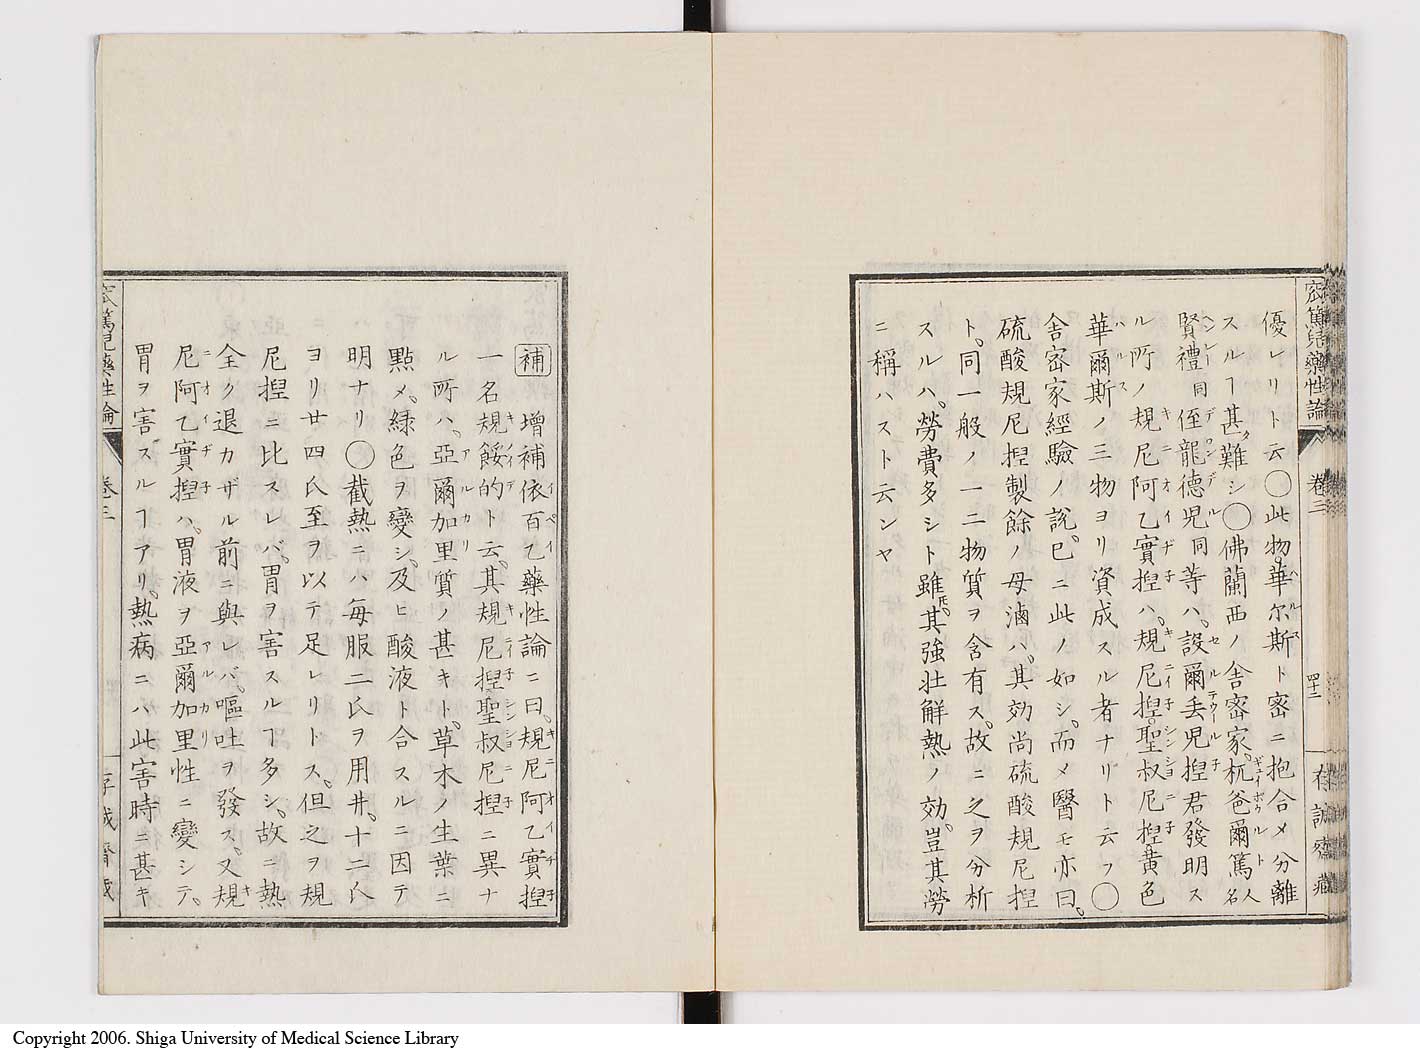 優レリト云〇此物華尓斯ト密ニ抱合メ分離
スルヿ甚タ難シ〇佛蘭西ノ舎密家杭爸爾篤人名
賢禮同侄龍德児同等ハ設爾丢児捏君發明ス
ル所ノ規尼阿乙實捏ハ規尼捏聖叔尼捏黄色
華爾斯ノ三物ヨリ資成スル者ナリト云フ〇
舎密家經驗ノ說已ニ此ノ如シ而メ醫モ亦曰
硫酸規尼捏製餘ノ母滷ハ其効尚硫酸規尼捏
ト同一般ノ一二物質ヲ含有ス故ニ之ヲ分析
スルハ勞費多シト雖𪜈其強壮解熱ノ効豈其勞
ニ稱ハスト云ンヤ
窊篤兒藥性論 卷三 四十三 存誠齋藏
補 增補依百乙藥性論ニ曰規尼阿乙實捏
一名規餒的ト云其規尼捏聖叔尼捏ニ異ナ
ル所ハ亞爾加里質ノ甚キト草木ノ生葉ニ
點メ緑色ヲ變シ及ヒ酸液ト合スルニ因テ
明ナリ〇截熱ニハ每服二氏ヲ用井十二氏
ヨリ廿四氏至ヲ以テ足レリトス但之ヲ規
尼捏ニ比スレバ胃ヲ害スルヿ多シ故ニ熱
全ク退カザル前ニ與レバ嘔吐ヲ發ス又規
尼阿乙實捏ハ胃液ヲ亞爾加里性ニ變シテ
胃ヲ害スルヿアリ熱病ニハ此害時ニ甚キ
窊篤兒藥性論 卷三 存誠齋藏
Copyright 2006. Shiga University of Medical Science Library